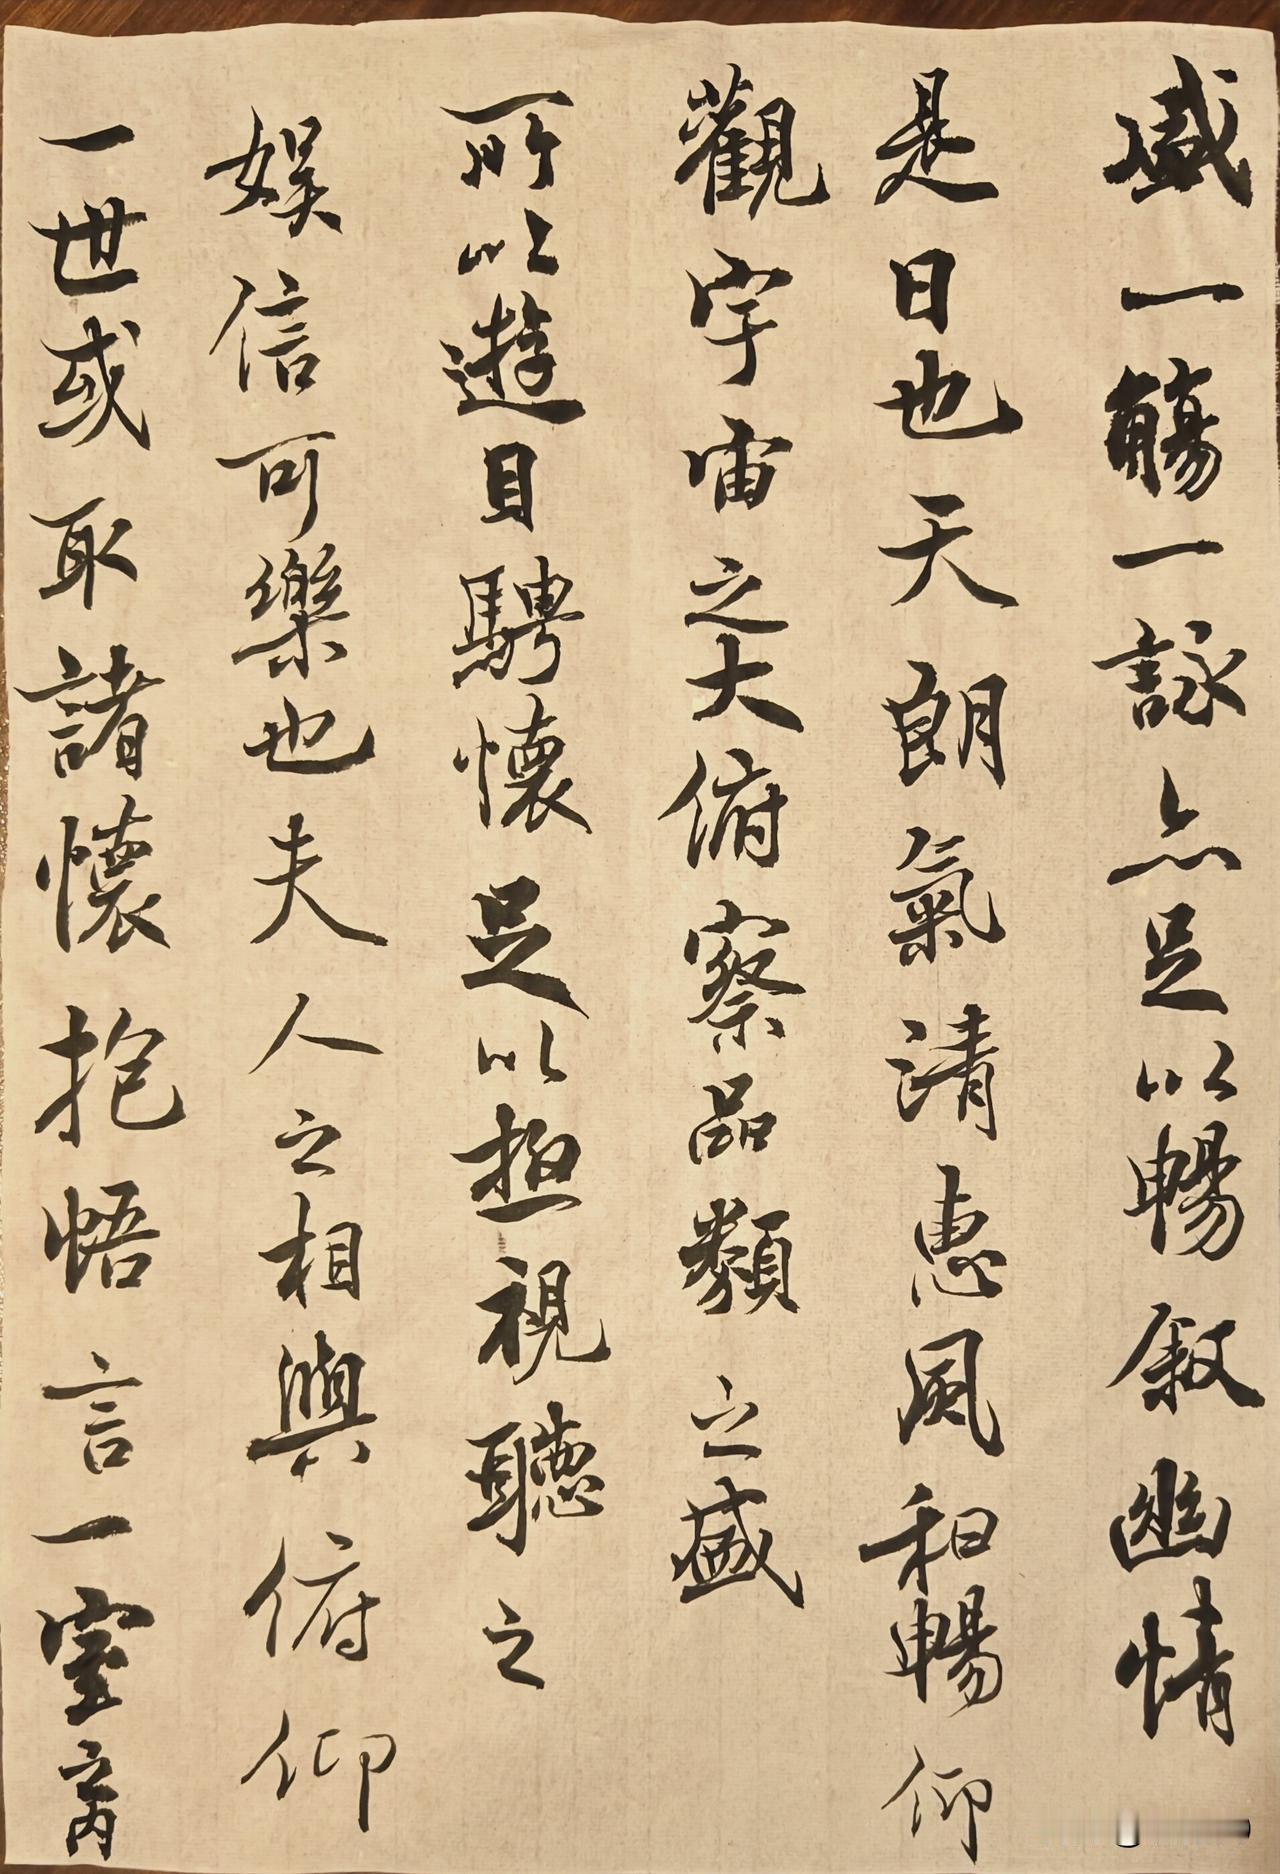 盛一觴一詠亦足以暢敘幽情
是日也天朗氣清惠風和暢仰
觀宇宙之大俯察品類之盛
所以遊目騁懷足以極視聽之
娛信可樂也夫人之相與俯仰
一世或取諸懷抱悟言一室之內